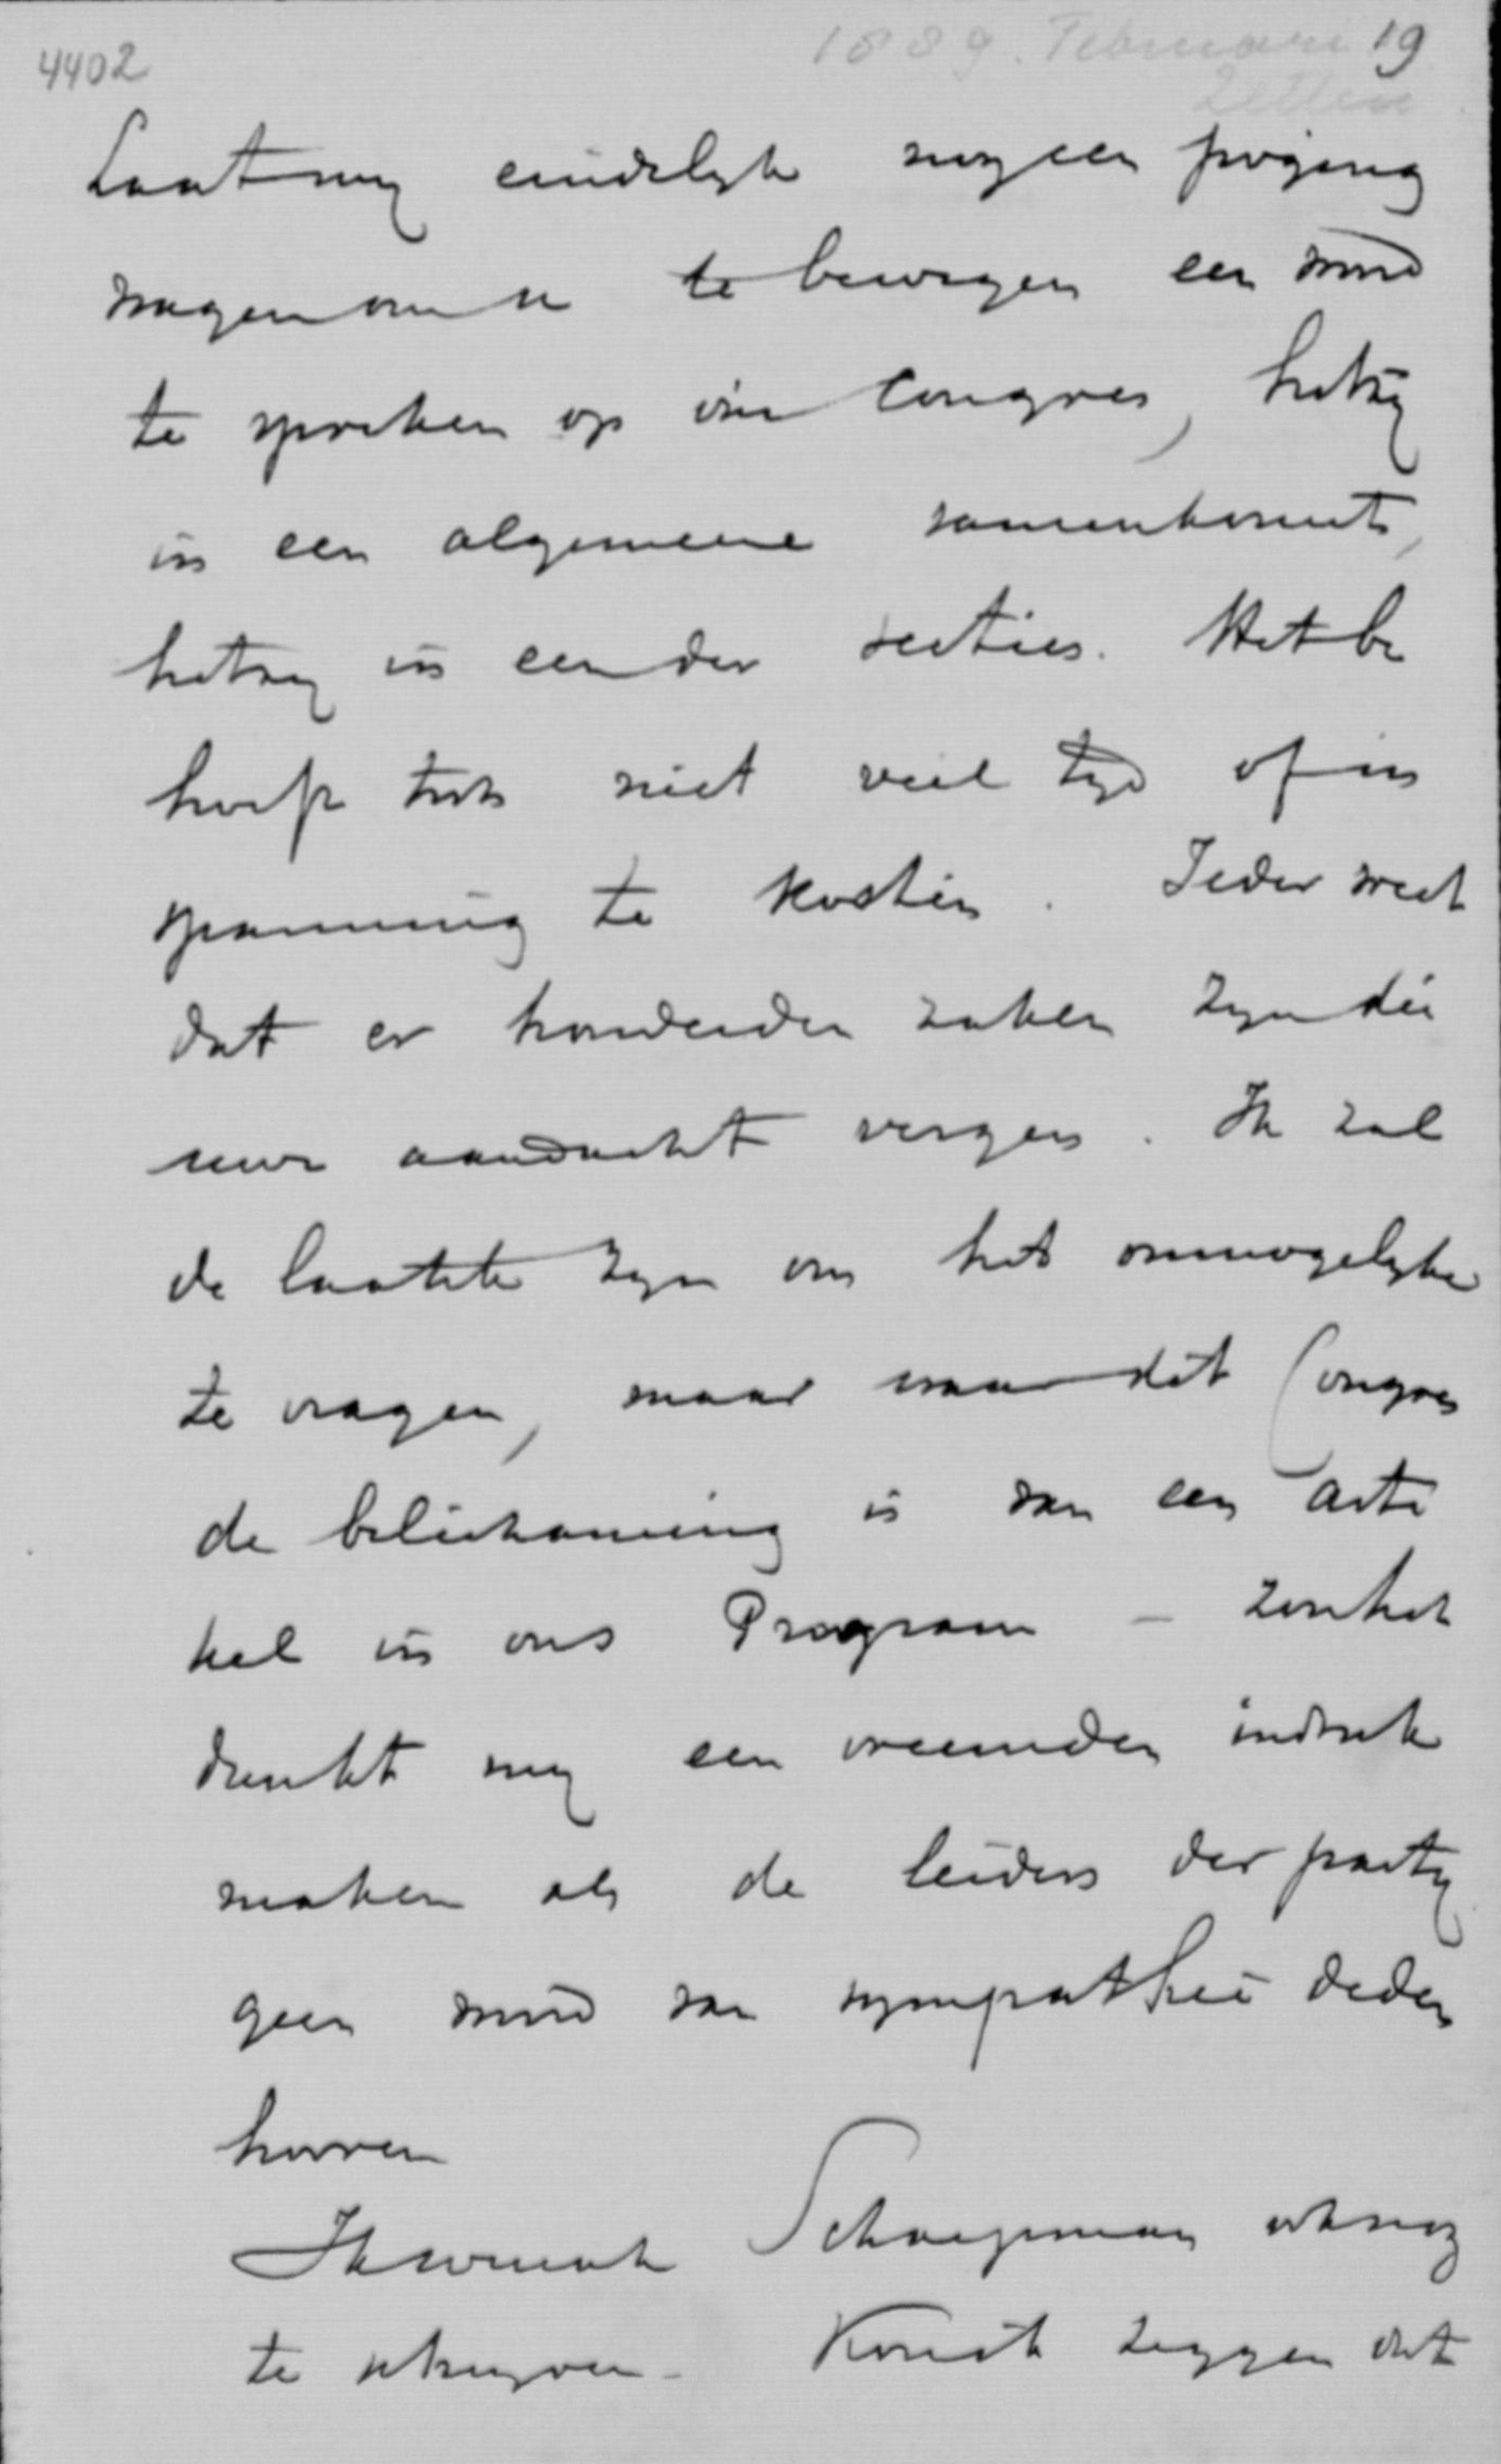 4402
1889. Februari 19
Zetten
Laat my eindelyk nog een poging
wagen om u te bewegen een woord
te spreken op ons Congres, hetzy
in een algemeene samenkomst,
hetzy in een der secties. Het be
hoeft toch niet veel tyd of in
spanning te kosten. Ieder weet
dat er honderden zaken zyn die
uwe aandacht vergen. Ik zal
de laatste zyn om het onmogelyke
te vragen, maar waar dit Congres
de belichaming is van een arti
kel in ons Program – zou het
dunkt my een vreemden indruk
maken als de leiders der party
geen woord van sympathie deden
hooren
Ik Schaepman
te schryven. Kon ik zeggen dat